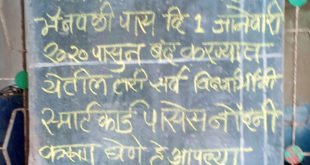 मॅन्युअली पास दि 1 जानेवारी
२०२० पासुन बंद करण्यात
येतील तरी सर्व विद्यार्थ्यांनी
स्मार्टकार्ड पासेस नोंदनी
करून घेणे हे आपल्या